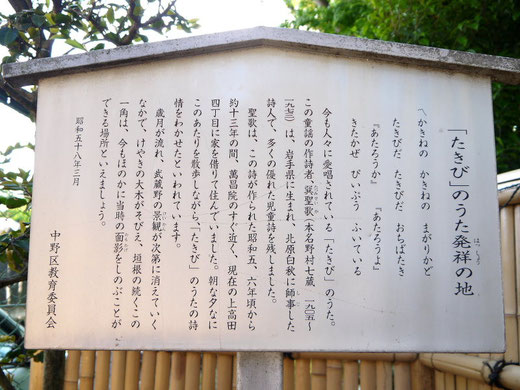 「たきび」のうた発祥の地
はっしょう
〽かきねの　かきねの　まがりかど
たきびだ　たきびだ　おちばたき
『あたろうか』　『あたろうよ』
きたかぜ　ぴいぷう　ふいている
今も人々に愛唱されている「たきび」のうた。
この童謡の作詩者、巽聖歌（本名野村七蔵、一九〇五～
一九七三）は、岩手県に生まれ、北原白秋に師事した
詩人で、多くの優れた児童詩を残しました。
聖歌は、この詩が作られた昭和五、六年頃から
約十三年の間、萬昌院のすぐ近く、現在の上高田
四丁目に家を借りて住んでいました。朝な夕なに
このあたりを散歩しながら、「たきび」のうたの詩
情をわかせたといわれています。
歳月が流れ、武蔵野の景観が次第に消えていく
なかで、けやきの大木がそびえ、垣根の続くこの
一角は、今もほのかに当時の面影をしのぶことが
できる場所といえましょう。
昭和五十八年三月
中野区教育委員会